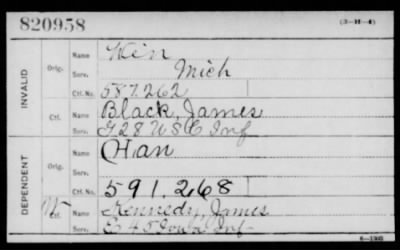 820958
(3-H-4)
INVALID
Orig.
Name
Win
Serv.
Mich
Ctf. No.
587.262
Ctf.
Name
Black, James
Serv.
F 28 U S C Inf
DEPENDENT
Orig.
Name
Han
Serv.
Ctf. No.
591.268
W
Ctf.
Name
Kennedy, James
Serv.
E 45 Iowa Inf